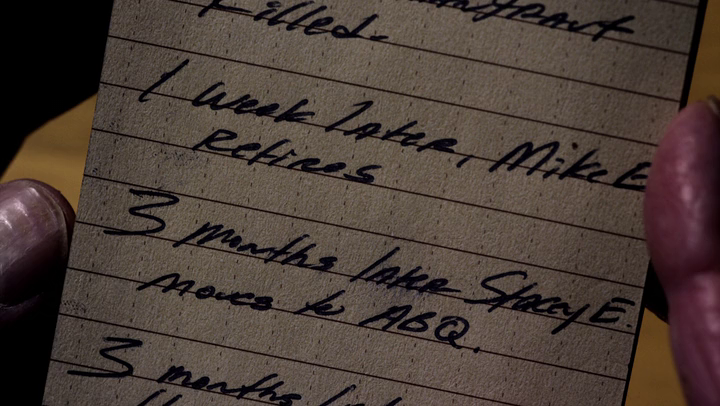 Killed.
1 Week later, Mike E
Retires
3 months later Stacey E.
moves to ABQ.
3 months